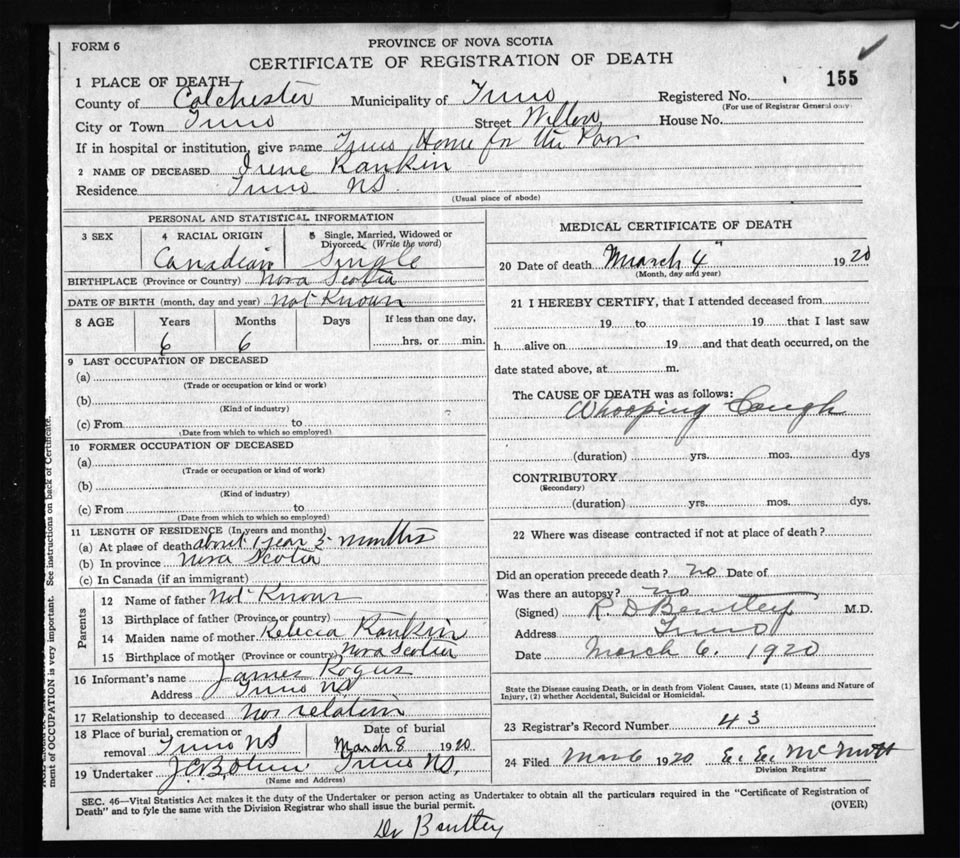 FORM 6
PROVINCE OF NOVA SCOTIA
CERTIFICATE OF REGISTRATION OF DEATH
155
1 PLACE OF DEATH
County of Colchester Municipality of Truro Registered No.
(For use of Registrar General only)
City or Town Truro Street Willow House No.
If in hospital or institution, give name Truro Home for the Poor
2 NAME OF DECEASED Irene Rankin
Residence Truro NS.
(Usual place of abode)
PERSONAL AND STATISTICAL INFORMATION
3 SEX
4 RACIAL ORIGIN Canadian
5 Single, Married, Widowed or Divorced (Write the word) Single
BIRTHPLACE (Province or Country) Nova Scotia
DATE OF BIRTH (month, day and year) not Known
8 AGE Years Months Days If less than one day,
6 6 hrs. or min.
9 LAST OCCUPATION OF DECEASED
(a)
(Trade or occupation or kind or work)
(b)
(Kind of industry)
(c) From to
(Date from which to which so employed)
10 FORMER OCCUPATION OF DECEASED
(a)
(Trade or occupation or kind of work)
(b)
(Kind of industry)
(c) From to
(Date from which to which so employed)
11 LENGTH OF RESIDENCE (In years and months)
(a) At place of death about 1 year 5 months
(b) In province Nova Scotia
(c) In Canada (if an immigrant)
Parents
12 Name of father Not Known
13 Birthplace of father (Province or country)
14 Maiden name of mother Rebecca Rankin
15 Birthplace of mother (Province or country) Nova Scotia
16 Informant's name James Rogers
Address Truro NS
17 Relationship to deceased no relation
18 Place of burial, cremation or removal Truro NS
Date of burial March 8 1920
19 Undertaker Truro NS.
(Name and Address)
MEDICAL CERTIFICATE OF DEATH
20 Date of death March 4" 1920
(Month, day and year)
21 I HEREBY CERTIFY, that I attended deceased from
19 to 19 that I last saw
h alive on 19 and that death occurred, on the
date stated above, at m.
The CAUSE OF DEATH was as follows:
Whooping Cough
(duration) yrs. mos. dys
CONTRIBUTORY
(Secondary)
(duration) yrs. mos. dys.
22 Where was disease contracted if not at place of death?
Did an operation precede death? no Date of
Was there an autopsy? no
(Signed) R. D Bentley M.D.
Address Truro
Date March 6. 1920
State the Disease causing Death, or in death from Violent Causes, state (1) Means and Nature of
Injury, (2) whether Accidental, Suicidal or Homicidal.
23 Registrar's Record Number 43
24 Filed Mar 6 1920 E. E. McNutt
Division Registrar
SEC. 46—Vital Statistics Act makes it the duty of the Undertaker or person acting as Undertaker to obtain all the particulars required in the "Certificate of Registration of
Death" and to fyle the same with the Division Registrar who shall issue the burial permit. (OVER)
Dr Bentley
ment of OCCUPATION is very important. See instructions on back of Certificate.